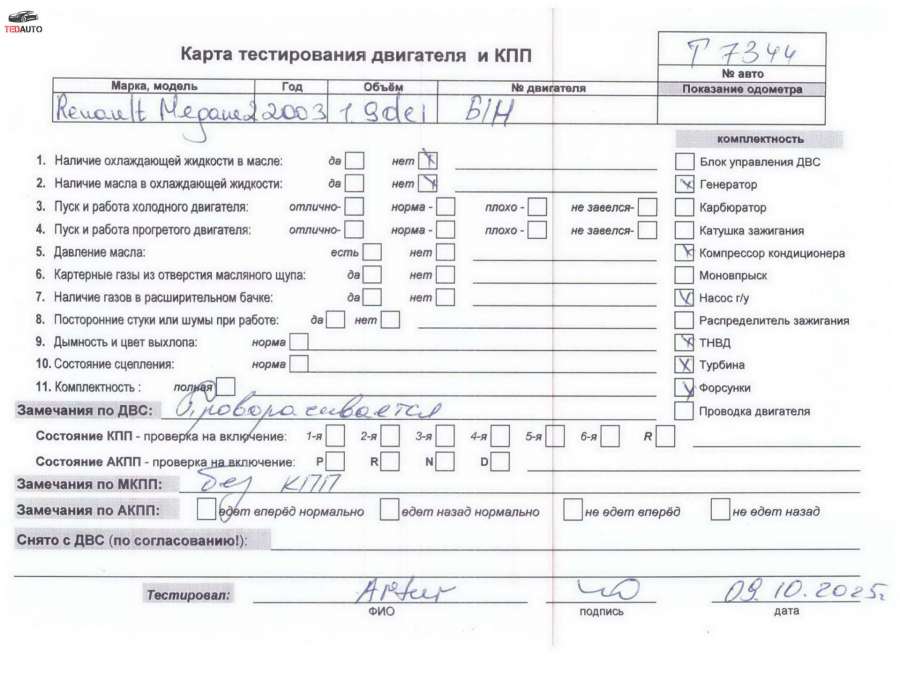 TEDAUTO
Карта тестирования двигателя и КПП
T 7344
№ авто
Марка, модель Год Объём № двигателя Показание одометра
Renault Megane 2 2003 1.9dci Б/Н
комплектность
1. Наличие охлаждающей жидкости в масле: да нет Блок управления ДВС
2. Наличие масла в охлаждающей жидкости: да нет Генератор
3. Пуск и работа холодного двигателя: отлично- норма - плохо - не завелся- Карбюратор
4. Пуск и работа прогретого двигателя: отлично- норма - плохо - не завелся- Катушка зажигания
5. Давление масла: есть нет Компрессор кондиционера
6. Картерные газы из отверстия масляного щупа: да нет Моновпрыск
7. Наличие газов в расширительном бачке: да нет Насос г/у
8. Посторонние стуки или шумы при работе: да нет Распределитель зажигания
9. Дымность и цвет выхлопа: норма ТНВД
10. Состояние сцепления: норма Турбина
11. Комплектность : полная Форсунки
Замечания по ДВС: Проворачивается Проводка двигателя
Состояние КПП - проверка на включение: 1-я 2-я 3-я 4-я 5-я 6-я R
Состояние АКПП - проверка на включение: P R N D
Замечания по МКПП: без КПП
Замечания по АКПП: едет вперёд нормально едет назад нормально не едет вперёд не едет назад
Снято с ДВС (по согласованию!):
Тестировал: Artur 09.10.2025г
ФИО подпись дата